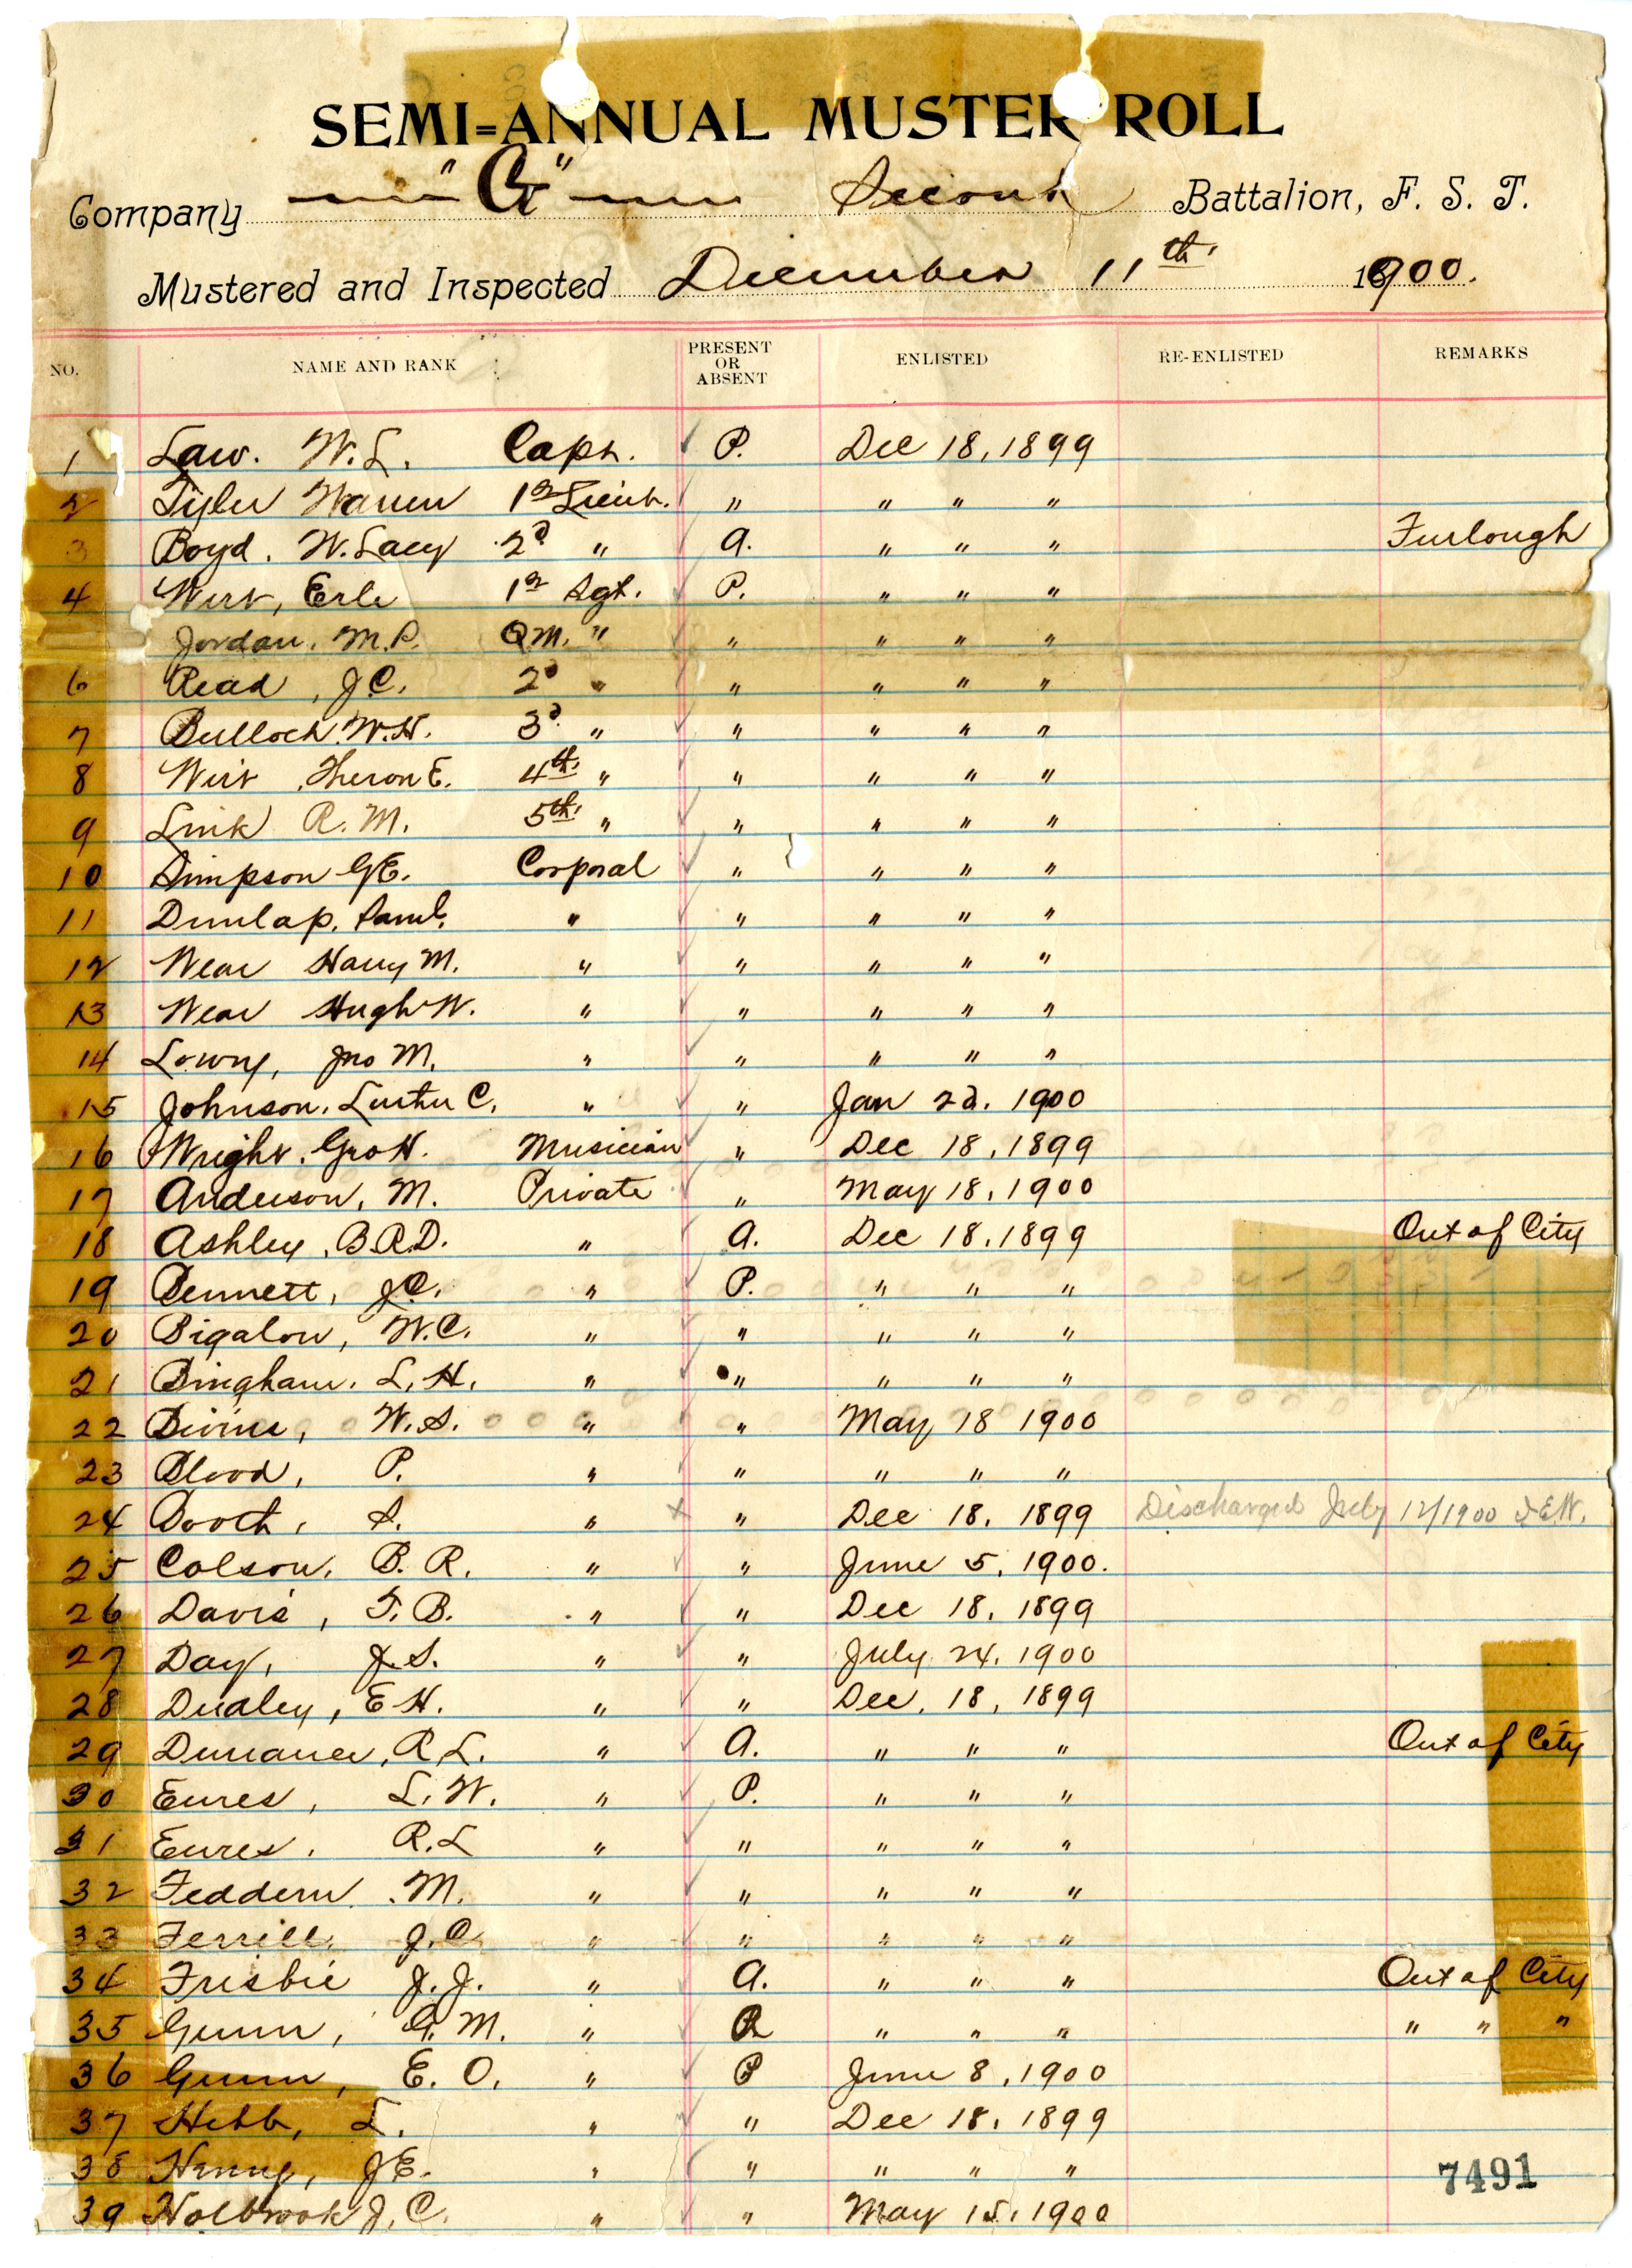 SEMI=ANNUAL MUSTER ROLL
Company "G" Second Battalion, F. S. T.
Mustered and Inspected December 11th. 1900.
NO. NAME AND RANK PRESENT OR ABSENT ENLISTED RE-ENLISTED REMARKS
1 Law. W. L. Capt. P. Dec 18, 1899
2 Tyler Warren 1st Lieut. " " " "
3 Boyd. W. Lacy 2d " A. " " " Furlough
4 Wirt, Erle 1st Sgt. P. " " "
Jordan, M.P. Q.M. " " " " "
6 Read, J.C. 2d " " " " "
7 Bulloch W.H. 3d. " " " " "
8 Wirt, Theron E. 4th. " " " " "
9 Link R. M. 5th. " " " " "
10 Simpson G.E. Corporal " " " "
11 Dunlap, Saml. " " " " "
12 Wear Harry M. " " " " "
13 Wear Hugh W. " " " " "
14 Lowry, Jno M. " " " " "
15 Johnson, Luther C. " " Jan 22. 1900
16 Wright. Geo H. Musician " Dec 18, 1899
17 Anderson, M. Private " May 18, 1900
18 Ashley, B.R.D. " A. Dec 18, 1899 Out of City
19 Bennett, J.C. " P. " " "
20 Bigalow, W.C. " " " " "
21 Bingham. L. H. " " " " "
22 Bivins, W. S. " " May 18 1900
23 Blood, P. " " " " "
24 Booth, S. " " Dec 18, 1899 Discharged July 12/1900
25 Colson, B. R. " " June 5, 1900.
26 Davis, T. B. " " Dec 18, 1899
27 Day, J. S. " " July 24, 1900
28 Dudley, E H. " " Dec, 18, 1899
29 R L. " A. " " " Out of City
30 Eures, L. W. " P. " " "
31 Eures. R. L " " " " "
32 Feddern. M. " " " " "
33 Ferrill, J. C. " " " " "
34 Frisbie J. J. " A. " " " Out of City
35 Gunn, G. M. " " " " " " "
36 Gunn, E. O. " P June 8, 1900
37 Hebb, L. " " Dec 18, 1899
38 Henry, J E. " " " " "
39 Holbrook J. C. " " May 15, 1900
7491